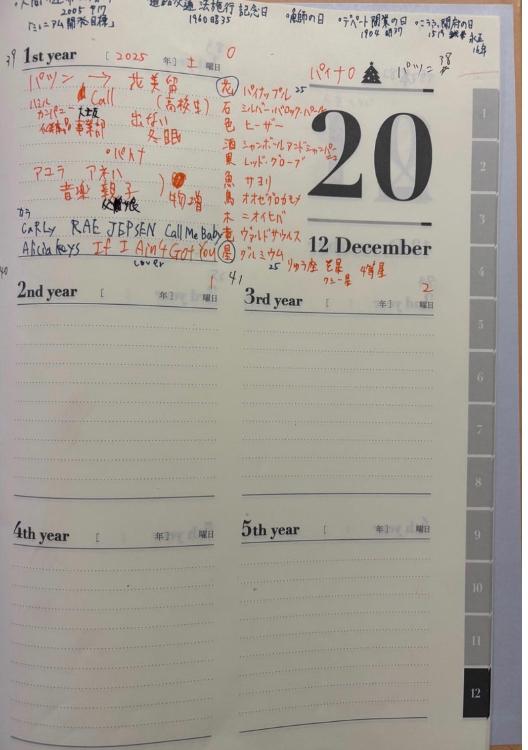 2005 平17
「ミレニアム開発目標」
道路交通法施行記念日
1960 昭35
・デパート開業の日
1904 明37
・こうふ開府の日
1519 永正16年
39
1st year [ 2025 年] 土 曜日
0
パイナ0
パツン 38
パツン → 花美留
Call (高校生)
出ない
冬眠
・パトナ
アユラ アネハ
音楽 親子
物増
CARLY RAE JEPSEN Call Me Baby
Alicia Keys If I Ain't Got You
cover
花 パイナップル 25
石 シルバー・バロック・パール
色 ヒーザー
酒 シャンボールアンドシャンパーニュ
果 レッドグローブ
魚 サヨリ
鳥 オオセグロカモメ
木 ニオイヒバ
竜 ヴァルドサウルス
星 グルミウム
25 りゅう座 ξ星
クシー星 4等星
20
12 December
40
2nd year [ 年] 曜日
1
41
3rd year [ 年] 曜日
2
4th year [ 年] 曜日
5th year [ 年] 曜日
1
2
3
4
5
6
7
8
9
10
11
12